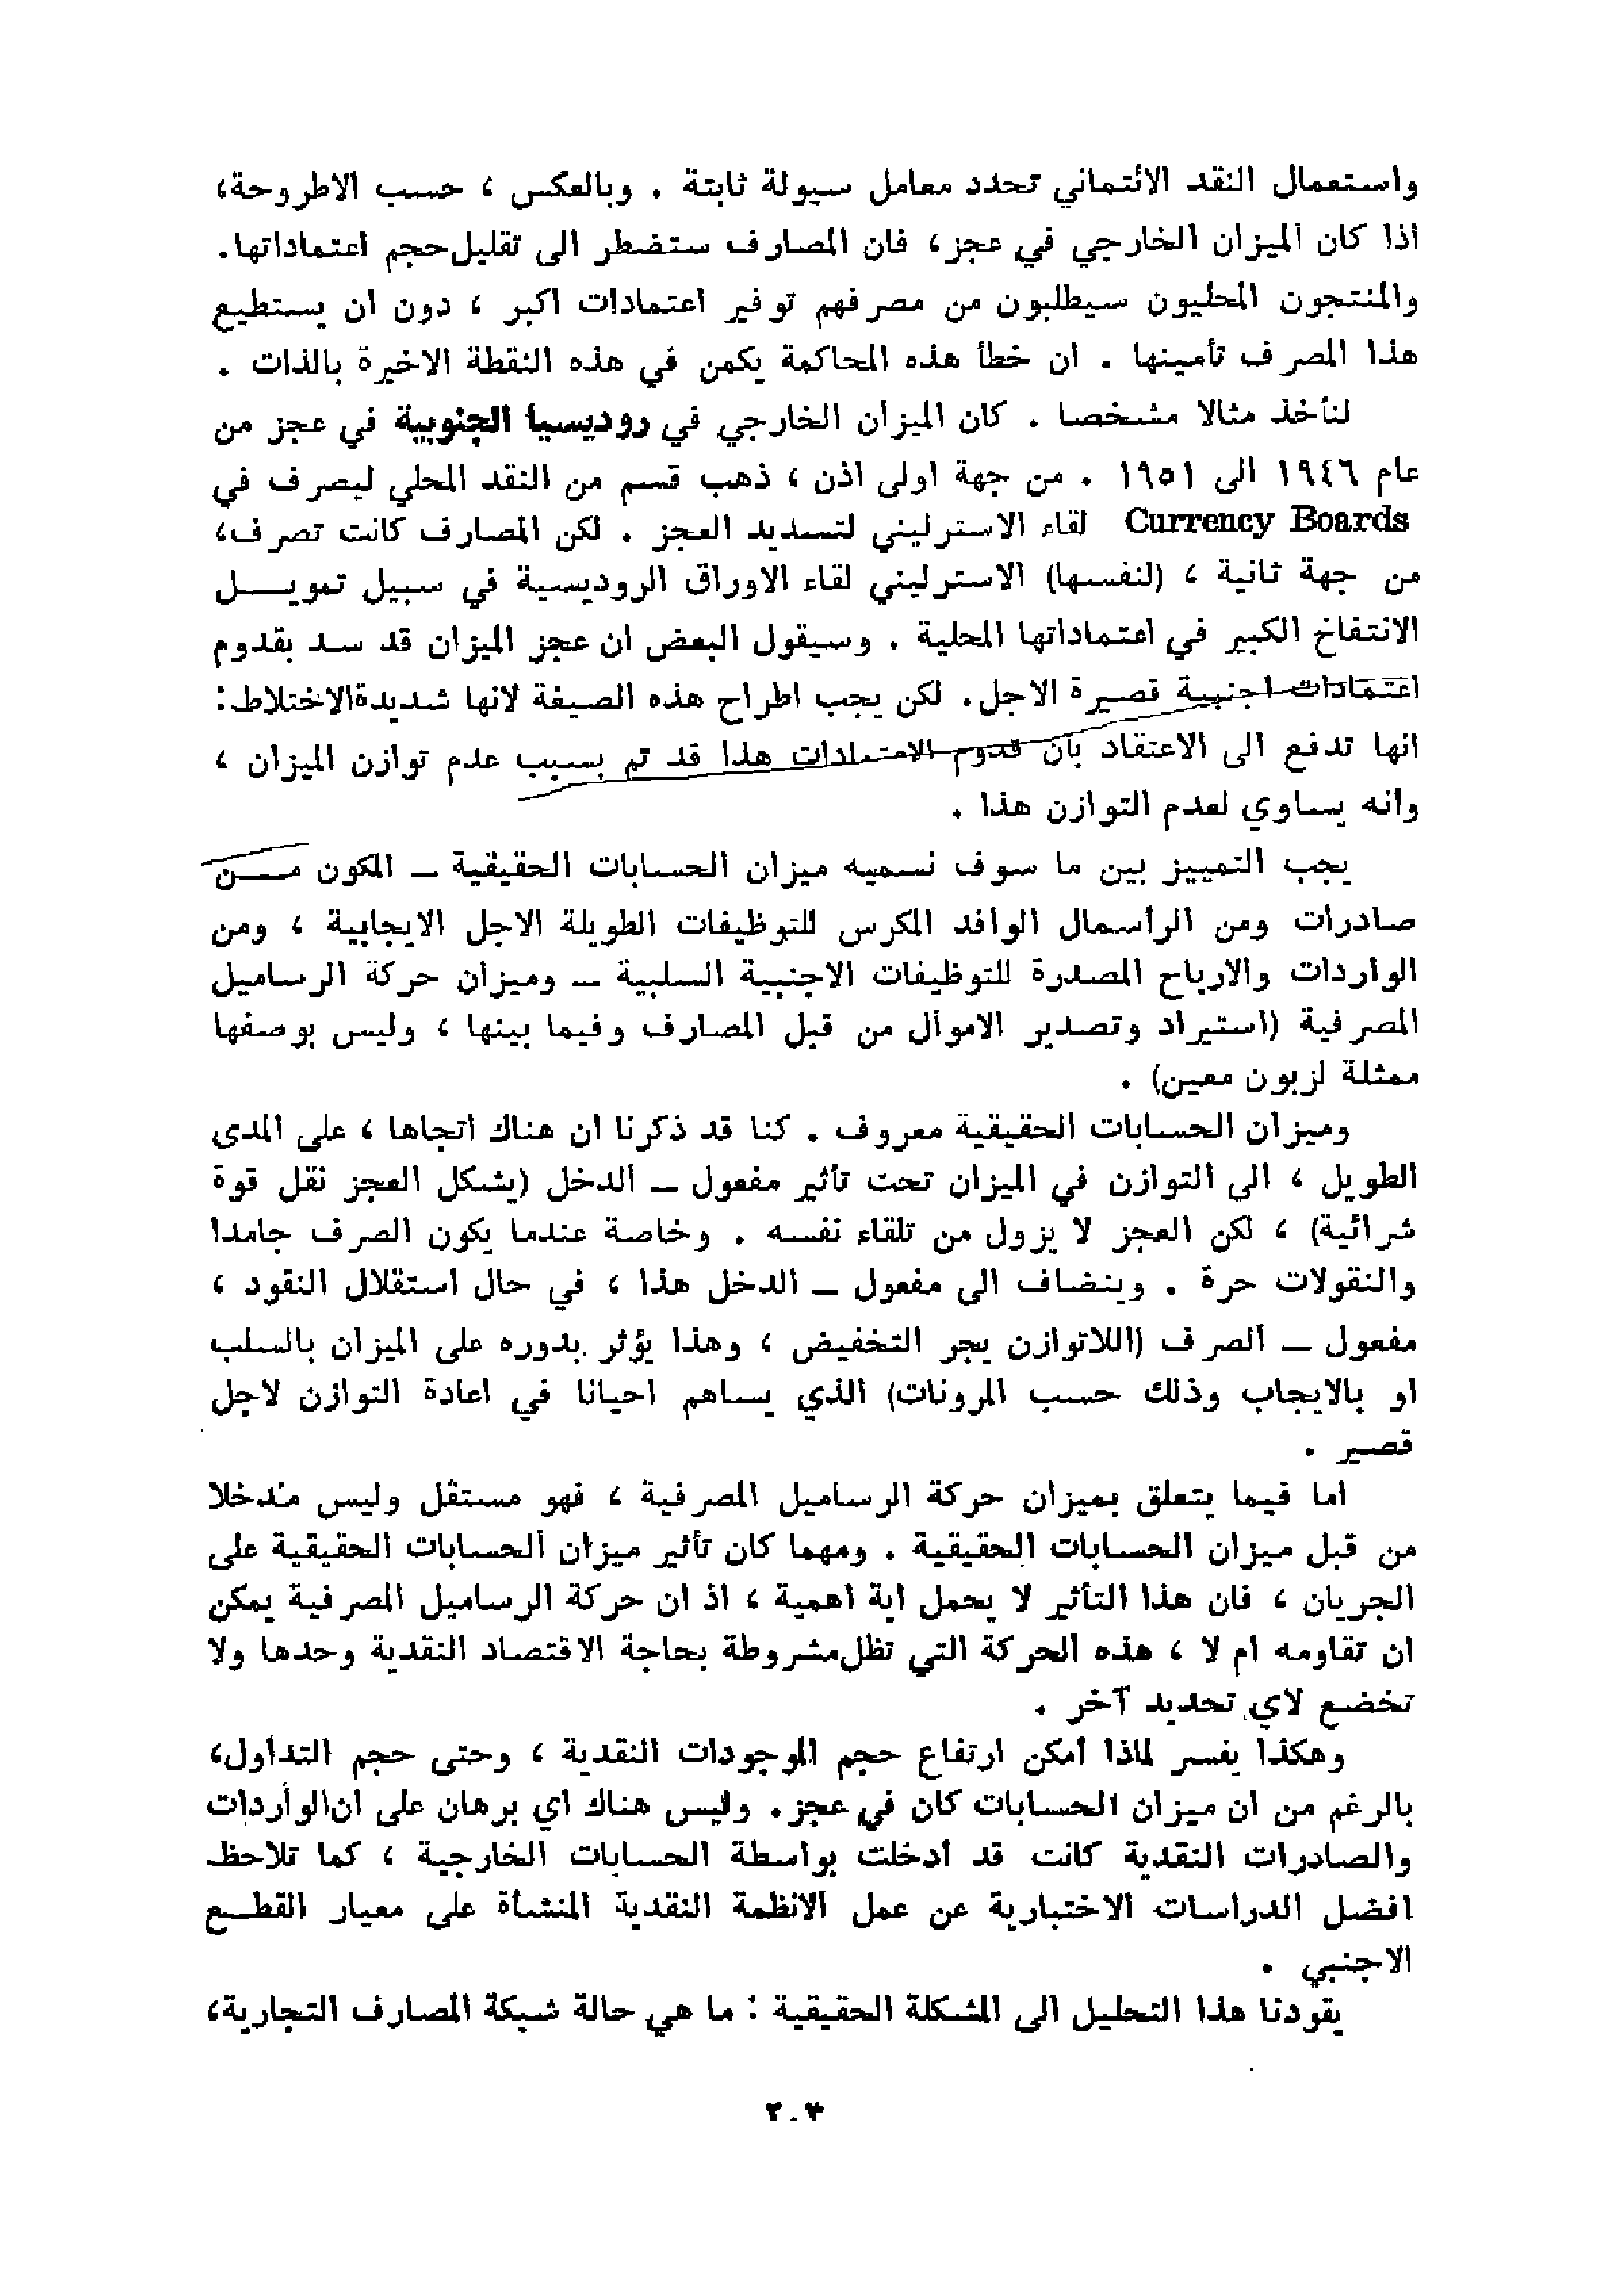 واستعمال النقد الائتماني تحدد معامل سيولة ثابتة . وبالعكس ، حسب الاطروحة،
اذا كان الميزان الخارجي في عجز، فان المصارف ستضطر الى تقليل حجم اعتماداتها.
والمنتجون المحليون سيطلبون من مصرفهم توفير اعتمادات اكبر ، دون ان يستطيع
هذا المصرف تأمينها . ان خطأ هذه المحاكمة يكمن في هذه النقطة الاخيرة بالذات .
لنأخذ مثالا مشخصا . كان الميزان الخارجي في روديسيا الجنوبية في عجز من
عام ١٩٤٦ الى ١٩٥١ . من جهة اولى اذن ، ذهب قسم من النقد المحلي ليصرف في
Currency Boards لقاء الاسترليني لتسديد العجز . لكن المصارف كانت تصرف،
من جهة ثانية ، (لنفسها) الاسترليني لقاء الاوراق الروديسية في سبيل تمويـــل
الانتفاخ الكبير في اعتماداتها المحلية . وسيقول البعض ان عجز الميزان قد سد بقدوم
اعتمادات اجنبية قصيرة الاجل. لكن يجب اطراح هذه الصيغة لانها شديدة الاختلاط:
انها تدفع الى الاعتقاد بأن قدوم الاعتمادات هذا قد تم بسبب عدم توازن الميزان ،
وانه يساوي لعدم التوازن هذا .
يجب التمييز بين ما سوف نسميه ميزان الحسابات الحقيقية – المكون مـــن
صادرات ومن الرأسمال الوافد المكرس للتوظيفات الطويلة الاجل الايجابية ، ومن
الواردات والارباح المصدرة للتوظيفات الاجنبية السلبية – وميزان حركة الرساميل
المصرفية (استيراد وتصدير الاموال من قبل المصارف وفيما بينها ، وليس بوصفها
ممثلة لزبون معين) .
وميزان الحسابات الحقيقية معروف . كنا قد ذكرنا ان هناك اتجاها ، على المدى
الطويل ، الى التوازن في الميزان تحت تأثير مفعول – الدخل (يشكل العجز نقل قوة
شرائية) ، لكن العجز لا يزول من تلقاء نفسه . وخاصة عندما يكون الصرف جامدا
والنقولات حرة . وينضاف الى مفعول – الدخل هذا ، في حال استقلال النقود ،
مفعول – الصرف (اللاتوازن يجر التخفيض ، وهذا يؤثر بدوره على الميزان بالسلب
او بالايجاب وذلك حسب المرونات) الذي يساهم احيانا في اعادة التوازن لاجل
قصير .
اما فيما يتعلق بميزان حركة الرساميل المصرفية ، فهو مستقل وليس متدخلا
من قبل ميزان الحسابات الحقيقية . ومهما كان تأثير ميزان الحسابات الحقيقية على
الجريان ، فان هذا التأثير لا يحمل اية اهمية ، اذ ان حركة الرساميل المصرفية يمكن
ان تقاومه ام لا ، هذه الحركة التي تظل مشروطة بحاجة الاقتصاد النقدية وحدها ولا
تخضع لاي تحديد آخر .
وهكذا يفسر لماذا امكن ارتفاع حجم الموجودات النقدية ، وحتى حجم التداول،
بالرغم من ان ميزان الحسابات كان في عجز. وليس هناك اي برهان على ان الواردات
والصادرات النقدية كانت قد ادخلت بواسطة الحسابات الخارجية ، كما تلاحظ
افضل الدراسات الاختبارية عن عمل الانظمة النقدية المنشأة على معيار القطــع
الاجنبي .
يقودنا هذا التحليل الى المشكلة الحقيقية : ما هي حالة شبكة المصارف التجارية،
٢٠٣